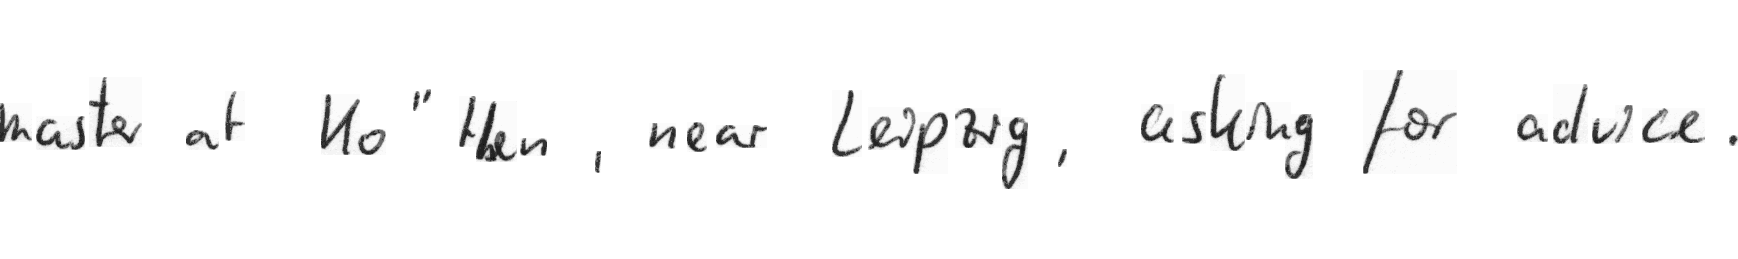 master at Ko"then, near Leipzig, asking for advice.